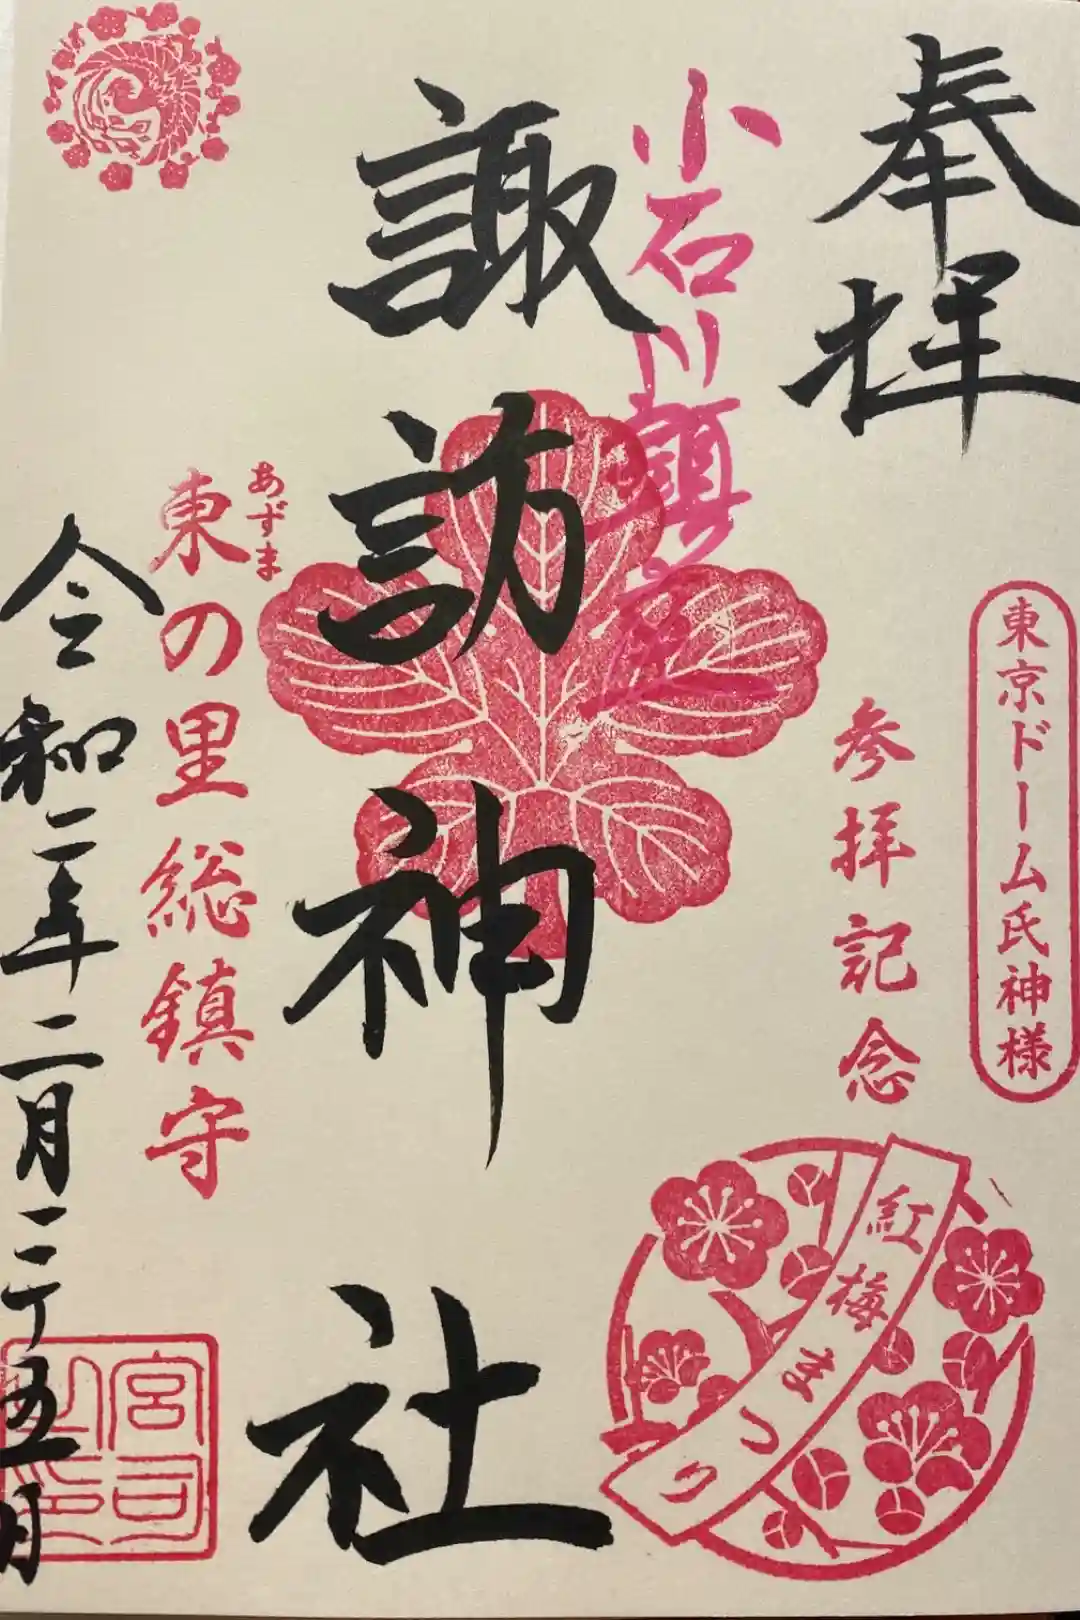 奉拝
東京ドーム氏神様
参拝記念
紅梅まつり
小石川鎮座
諏訪神社
あずま
東の里総鎮守
令和二年二月二十五日
宮司之印